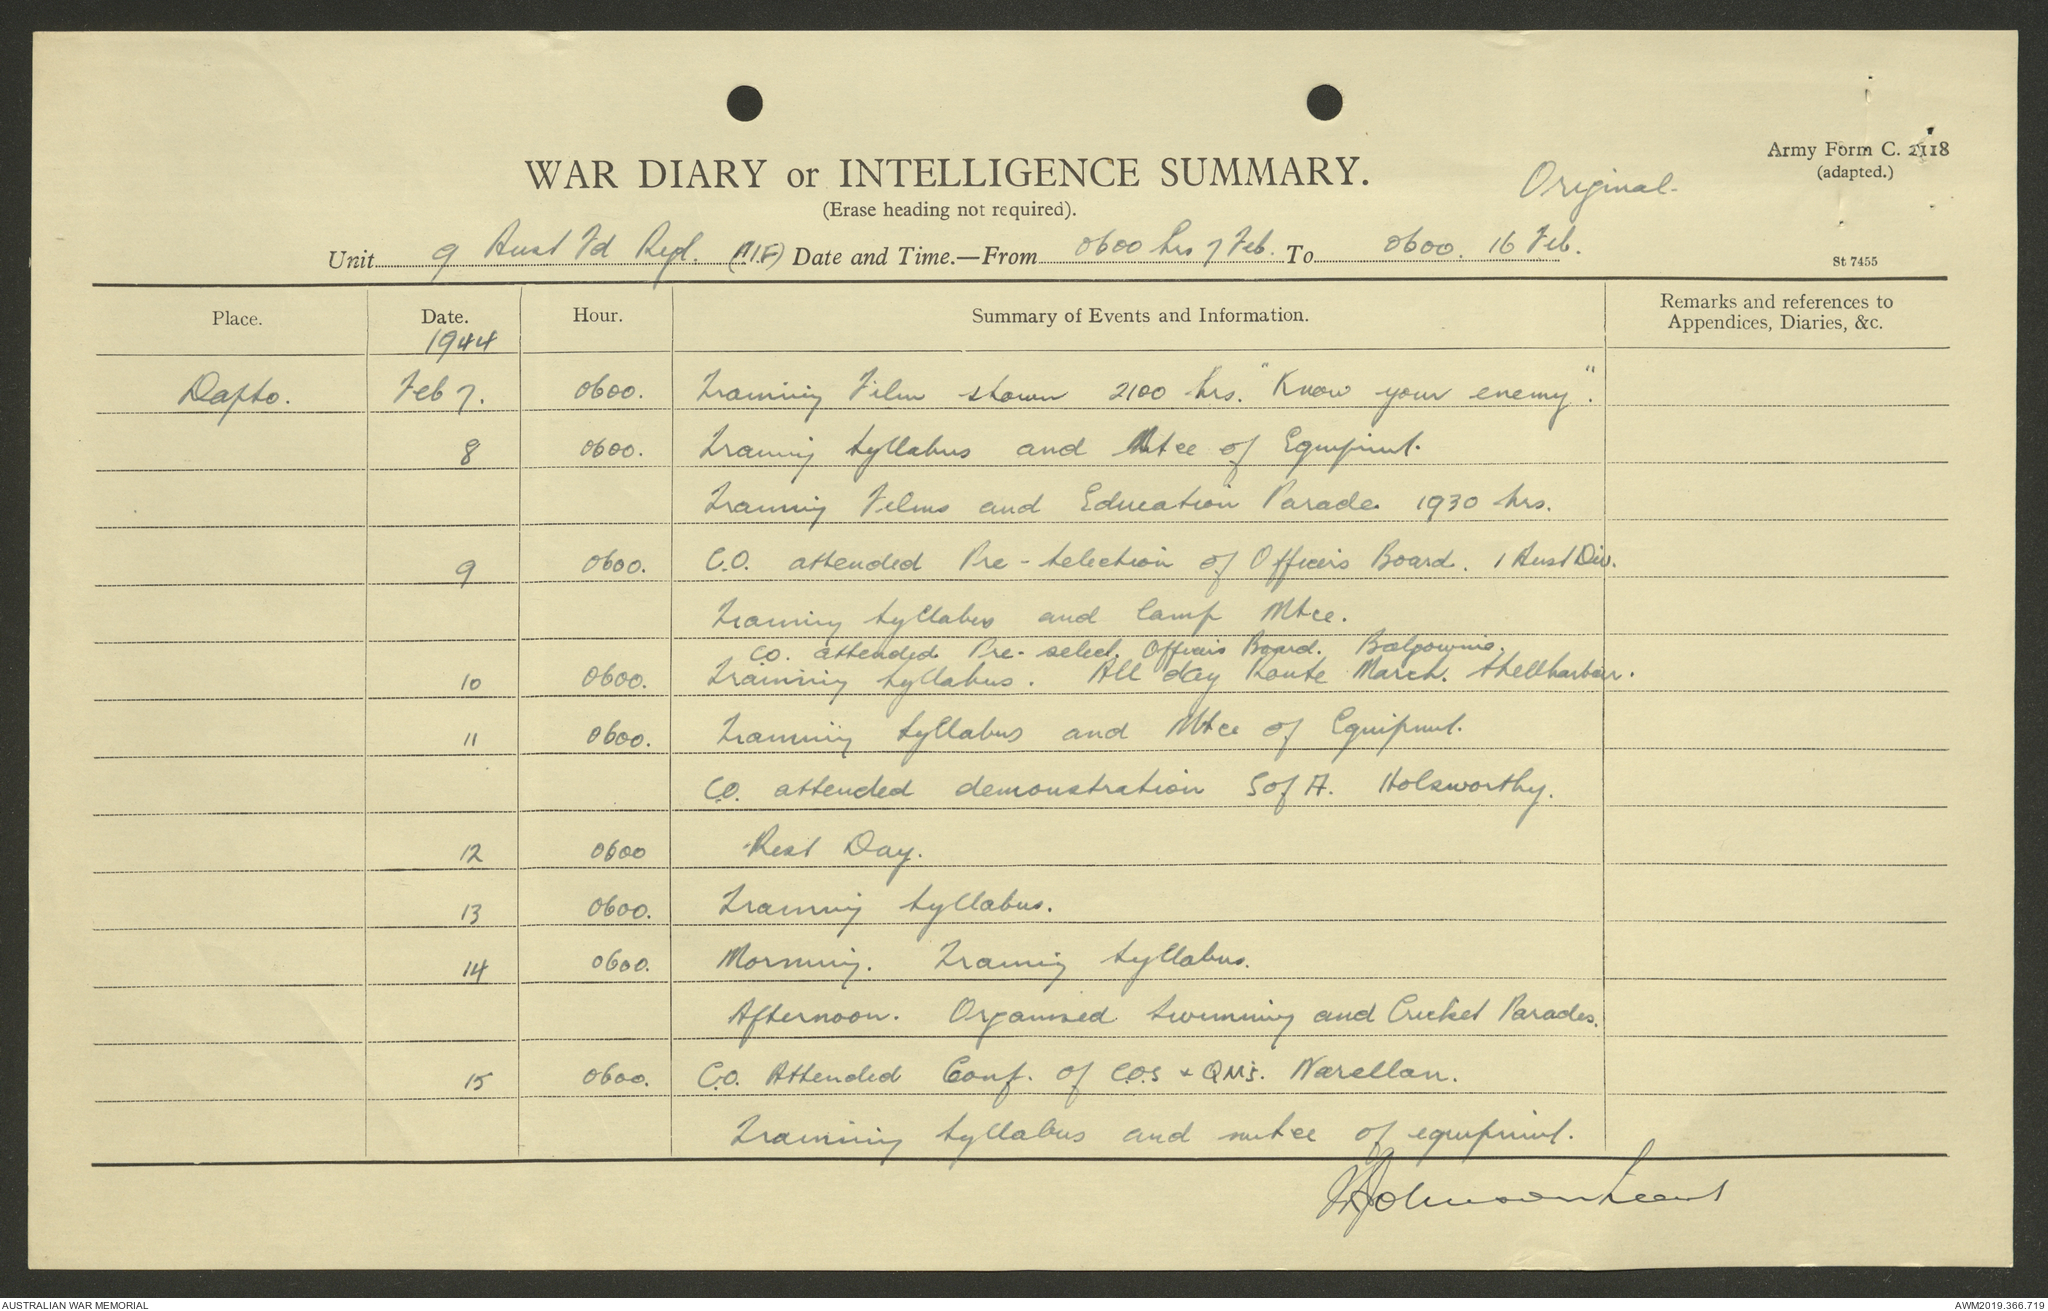 Army Form C. 2118
(adapted.)
WAR DIARY or INTELLIGENCE SUMMARY.
Original.
(Erase heading not required).
Unit 9 Aust Fd Regt. (AIF) Date and Time.—From 0600 hrs 7 Feb. To 0600. 16 Feb.
St 7455
Place. Date. Hour. Summary of Events and Information. Remarks and references to Appendices, Diaries, &c.
1944
Dapto. Feb 7. 0600. Training Film shown 2100 hrs. "Know your enemy".
8 0600. Training Syllabus and Mtce of Equipment.
Training Films and Education Parade. 1930 hrs.
9 0600. C.O. attended Pre-selection of Officers Board. 1 Aust Div.
Training Syllabus and Camp Mtce.
C.O. attended Pre-select. Officers Board. Balgownie.
10 0600. Training Syllabus. All day Route March. Shellharbour.
11 0600. Training Syllabus and Mtce of Equipment.
C.O. attended demonstration S of A. Holsworthy.
12 0600 Rest Day.
13 0600. Training Syllabus.
14 0600. Morning. Training Syllabus.
Afternoon. Organised Swimming and Cricket Parades.
15 0600. C.O. Attended Conf. of C.O.s + QMs. Narellan.
Training Syllabus and mtce of equipment.
AUSTRALIAN WAR MEMORIAL
AWM2019.366.719